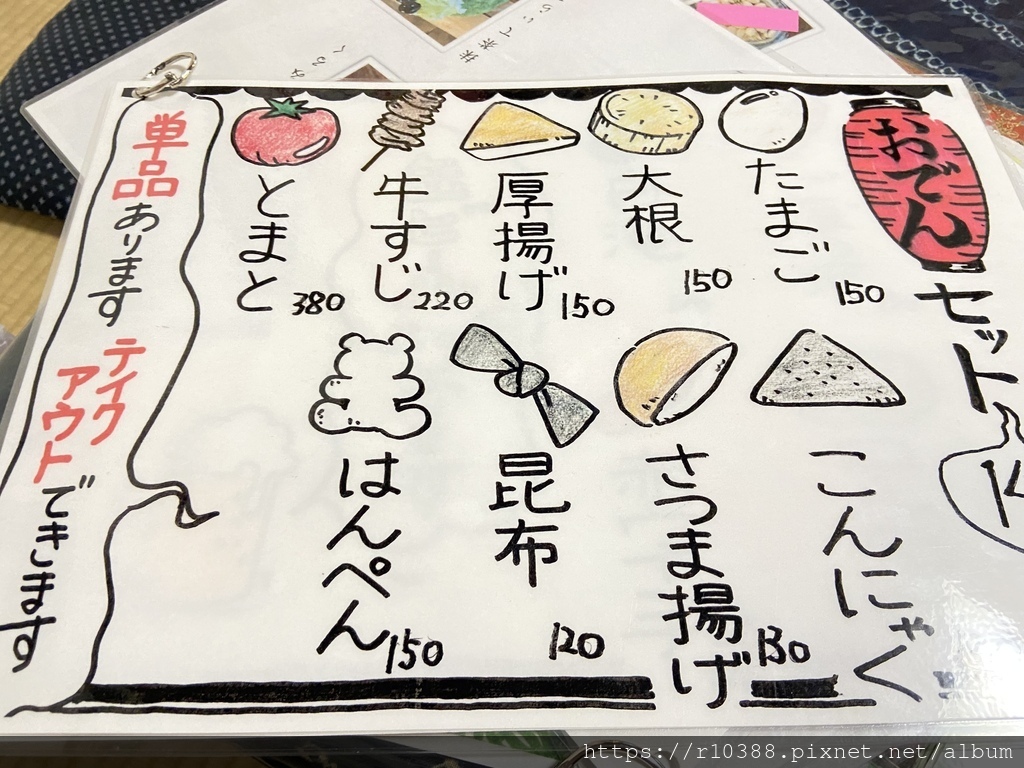 おでん
セット
たまご
150
大根
150
厚揚げ
150
牛すじ
220
とまと
380
こんにゃく
さつま揚げ
130
昆布
120
はんぺん
150
単品あります
テイクアウトできます
https://r10388.pixnet.net/album